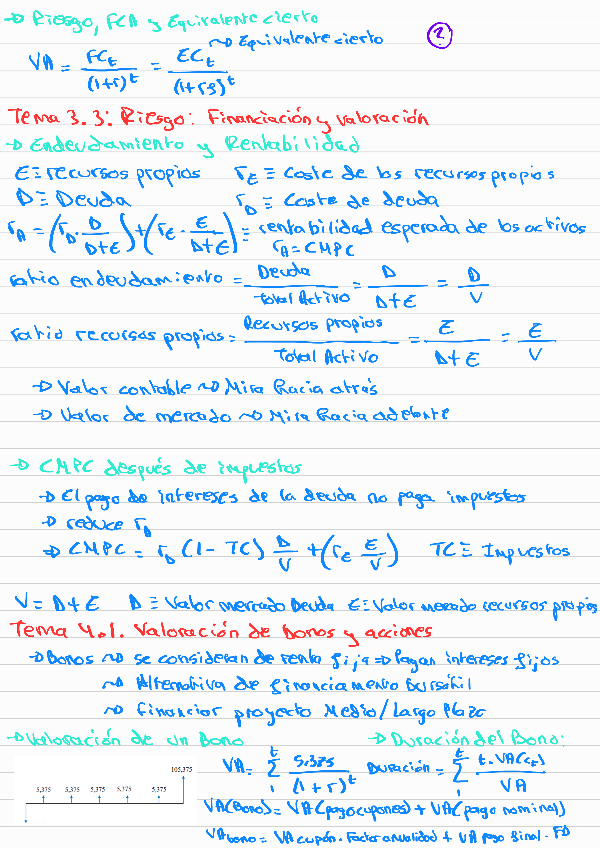 → Riesgo, FCA y Equivalente cierto
2
VA = FCt/(1+r)^t = ECt/(1+rf)^t ~> Equivalente cierto
Tema 3.3: Riesgo: Financiación y valoración
→ Endeudamiento y Rentabilidad
E ≡ recursos propios rE ≡ Coste de los recursos propios
D ≡ Deuda rD ≡ Coste de deuda
rA = (rD · D/(D+E)) + (rE · E/(D+E)) ≡ rentabilidad esperada de los activos
rA = CMPC
ratio endeudamiento = Deuda/Total Activo = D/(D+E) = D/V
ratio recursos propios = Recursos propios/Total Activo = E/(D+E) = E/V
→ Valor contable ~> Mira hacia atrás
→ Valor de mercado ~> Mira hacia adelante
→ CMPC después de impuestos
→ El pago de intereses de la deuda no paga impuestos
→ reduce rD
⇒ CMPC = rD (1 - TC) D/V + (rE E/V) TC ≡ Impuestos
V = D+E D ≡ Valor mercado Deuda E ≡ Valor mercado recursos propios
Tema 4.1. Valoración de bonos y acciones
→ Bonos ~> se consideran de renta fija ⇒ Pagan intereses fijos
~> Alternativa de financiamento Bursátil
~> financiar proyecto Medio/Largo Plazo
→ Valoración de un Bono → Duración del Bono:
5,375 5,375 5,375 5,375 5,375 105,375
VA = Σ_1^t 5,375/(1+r)^t Duración = Σ_1^t t·VA(Ct)/VA
VA(Bono) = VA(pago cupones) + VA(pago nominal)
VA bono = VA cupón · Factor anualidad + VA pago final · FD